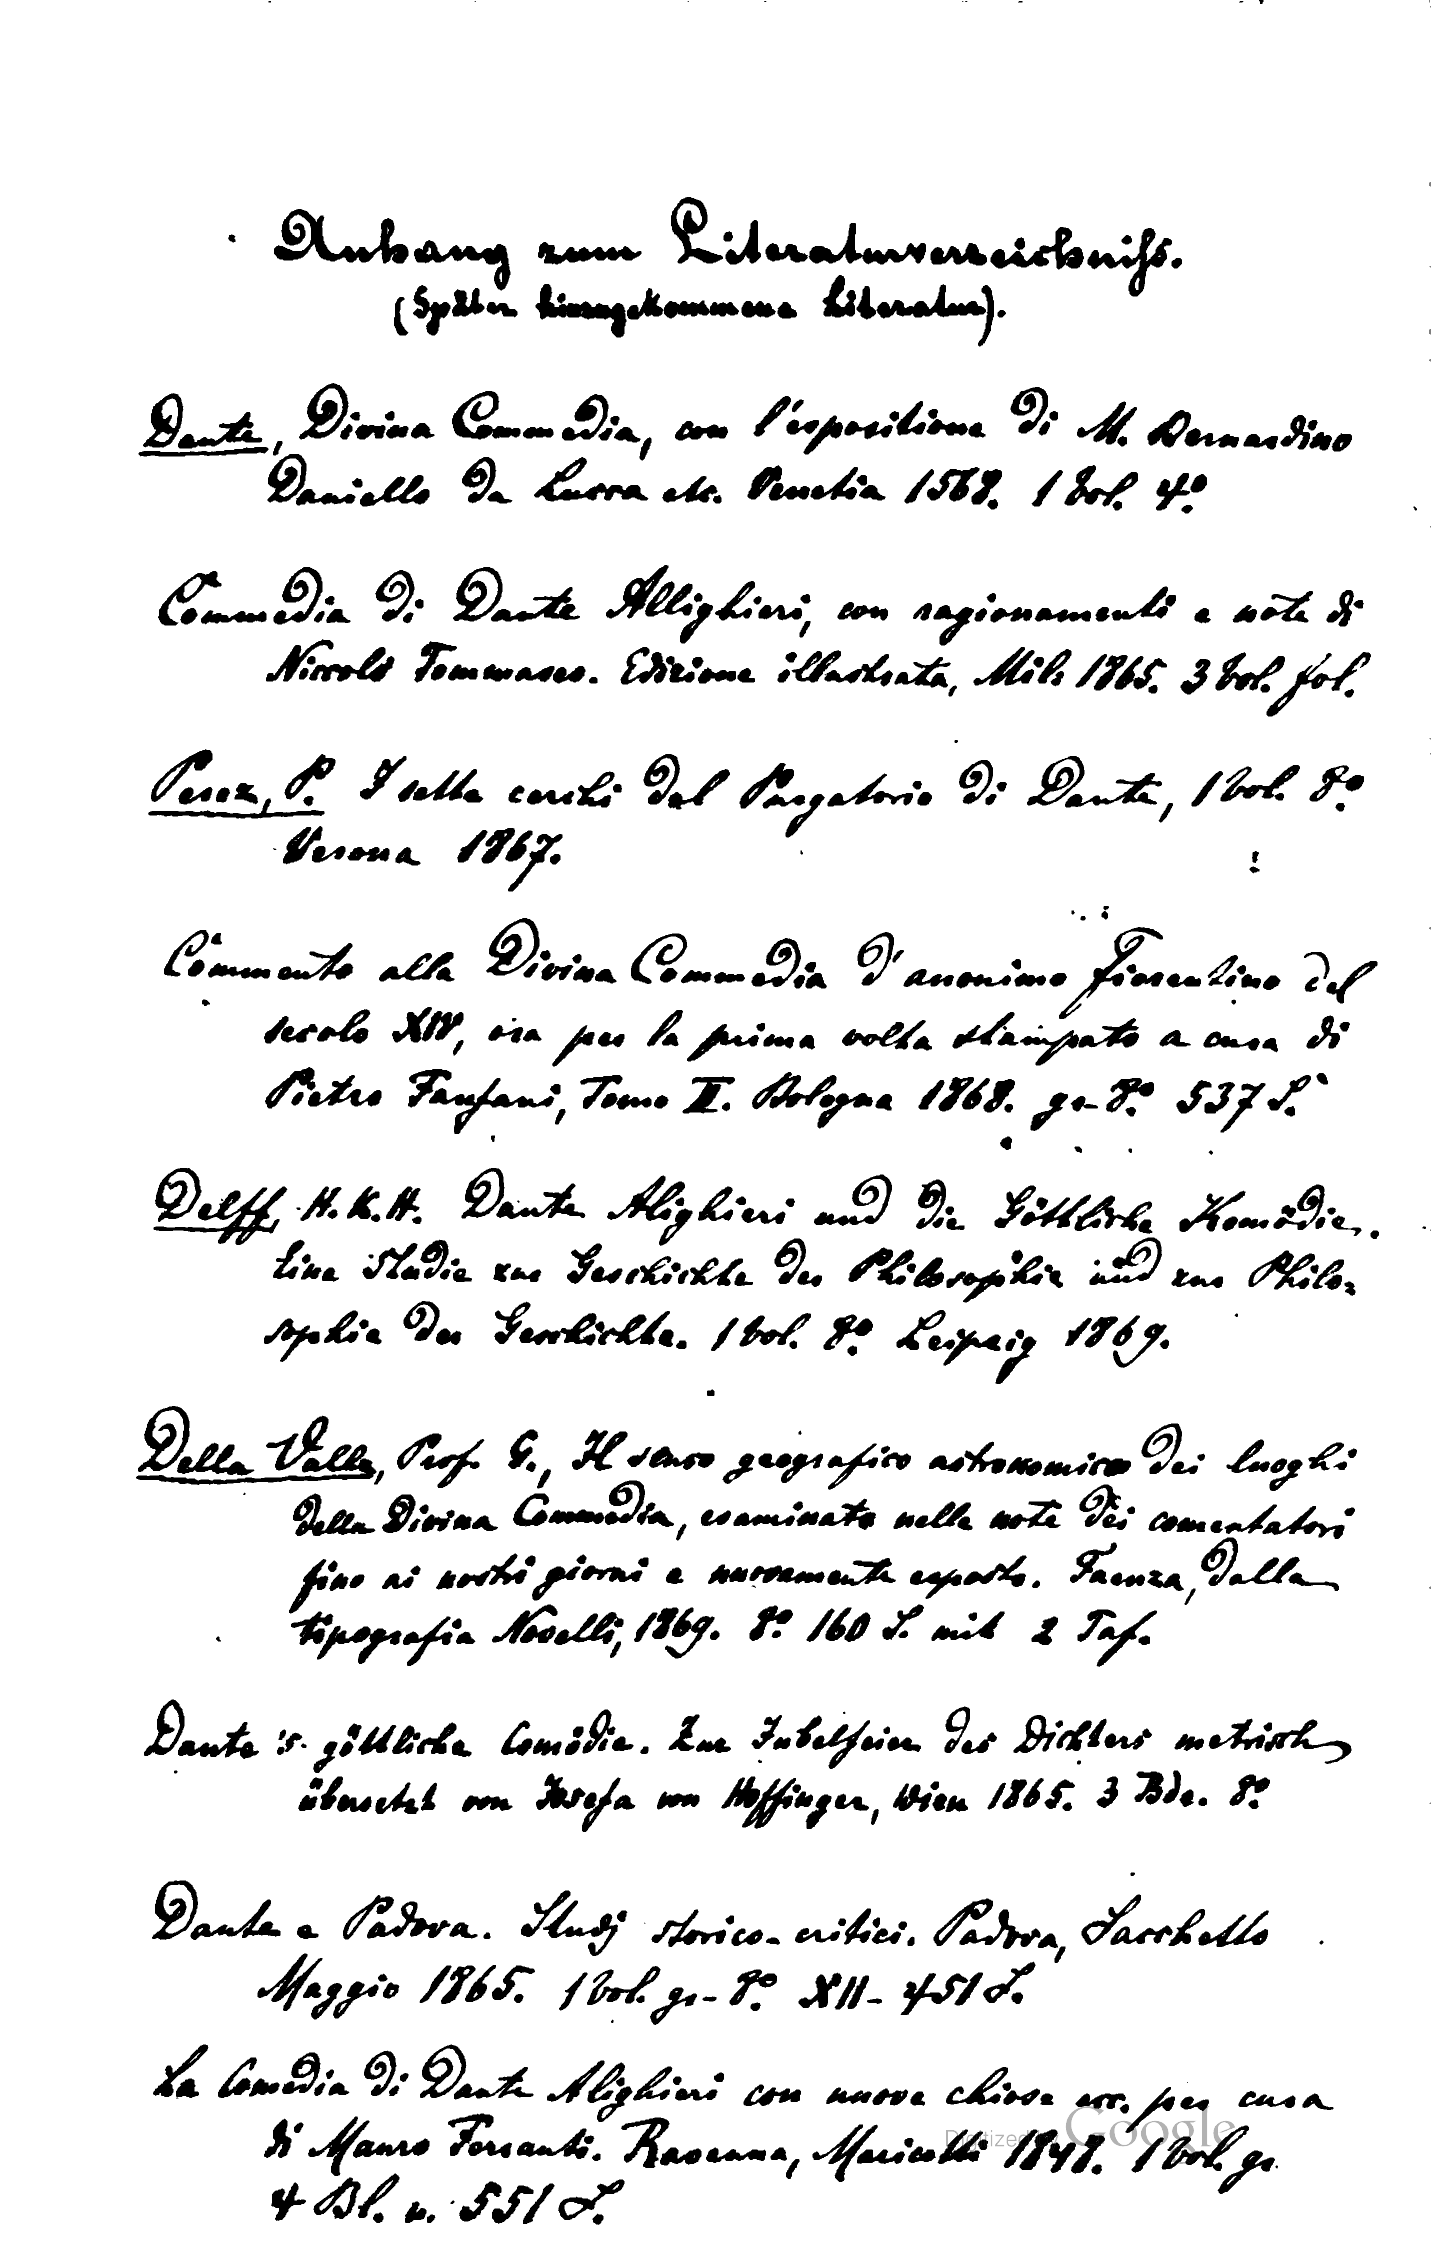 Anhang zum Literaturverzeichniss.
(Später hinzugekommene Literatur).
Dante, Divina Commedia, con l'espositione di M. Bernardino
Daniello da Lucca etc. Venetia 1568. 1 Vol. 4º.
Commedia di Dante Allighieri, con ragionamenti e note di
Niccolò Tommaseo. Edizione illustrata, Mil. 1865. 3 Vol. fol.
Perez, P. I sette cerchi del Purgatorio di Dante, 1 Vol. 8º.
Verona 1867.
Commento alla Divina Commedia d'anonimo Fiorentino del
secolo XIV, ora per la prima volta stampato a cura di
Pietro Fanfani, Tomo II. Bologna 1868. gr-8º. 537 S.
Delff, H. K. H. Dante Alighieri und die Göttliche Komödie.
Eine Studie zur Geschichte der Philosophie und zur Philo-
sophie der Geschichte. 1 Vol. 8º. Leipzig 1869.
Della Valle, Prof. G., Il senso geografico astronomico dei luoghi
della Divina Commedia, esaminato nelle note dei comentatori
fino ai nostri giorni e nuovamente esposto. Faenza, dalla
tipografia Novelli, 1869. 8º. 160 S. mit 2 Taf.
Dante's göttliche Comödie. Zur Jubelfeier des Dichters metrisch
übersetzt von Josefa von Hoffinger, Wien 1865. 3 Bde. 8º.
Dante e Padova. Studj storico-critici. Padova, Sacchetto
Maggio 1865. 1 Vol. gr-8º. XII-451 S.
La Comedia di Dante Alighieri con nuove chiose ecc. per cura
di Mauro Ferranti. Ravenna, Maricotti 1848. 1 Vol. gr.
4 Bl. u. 551 S.
Digitized Google